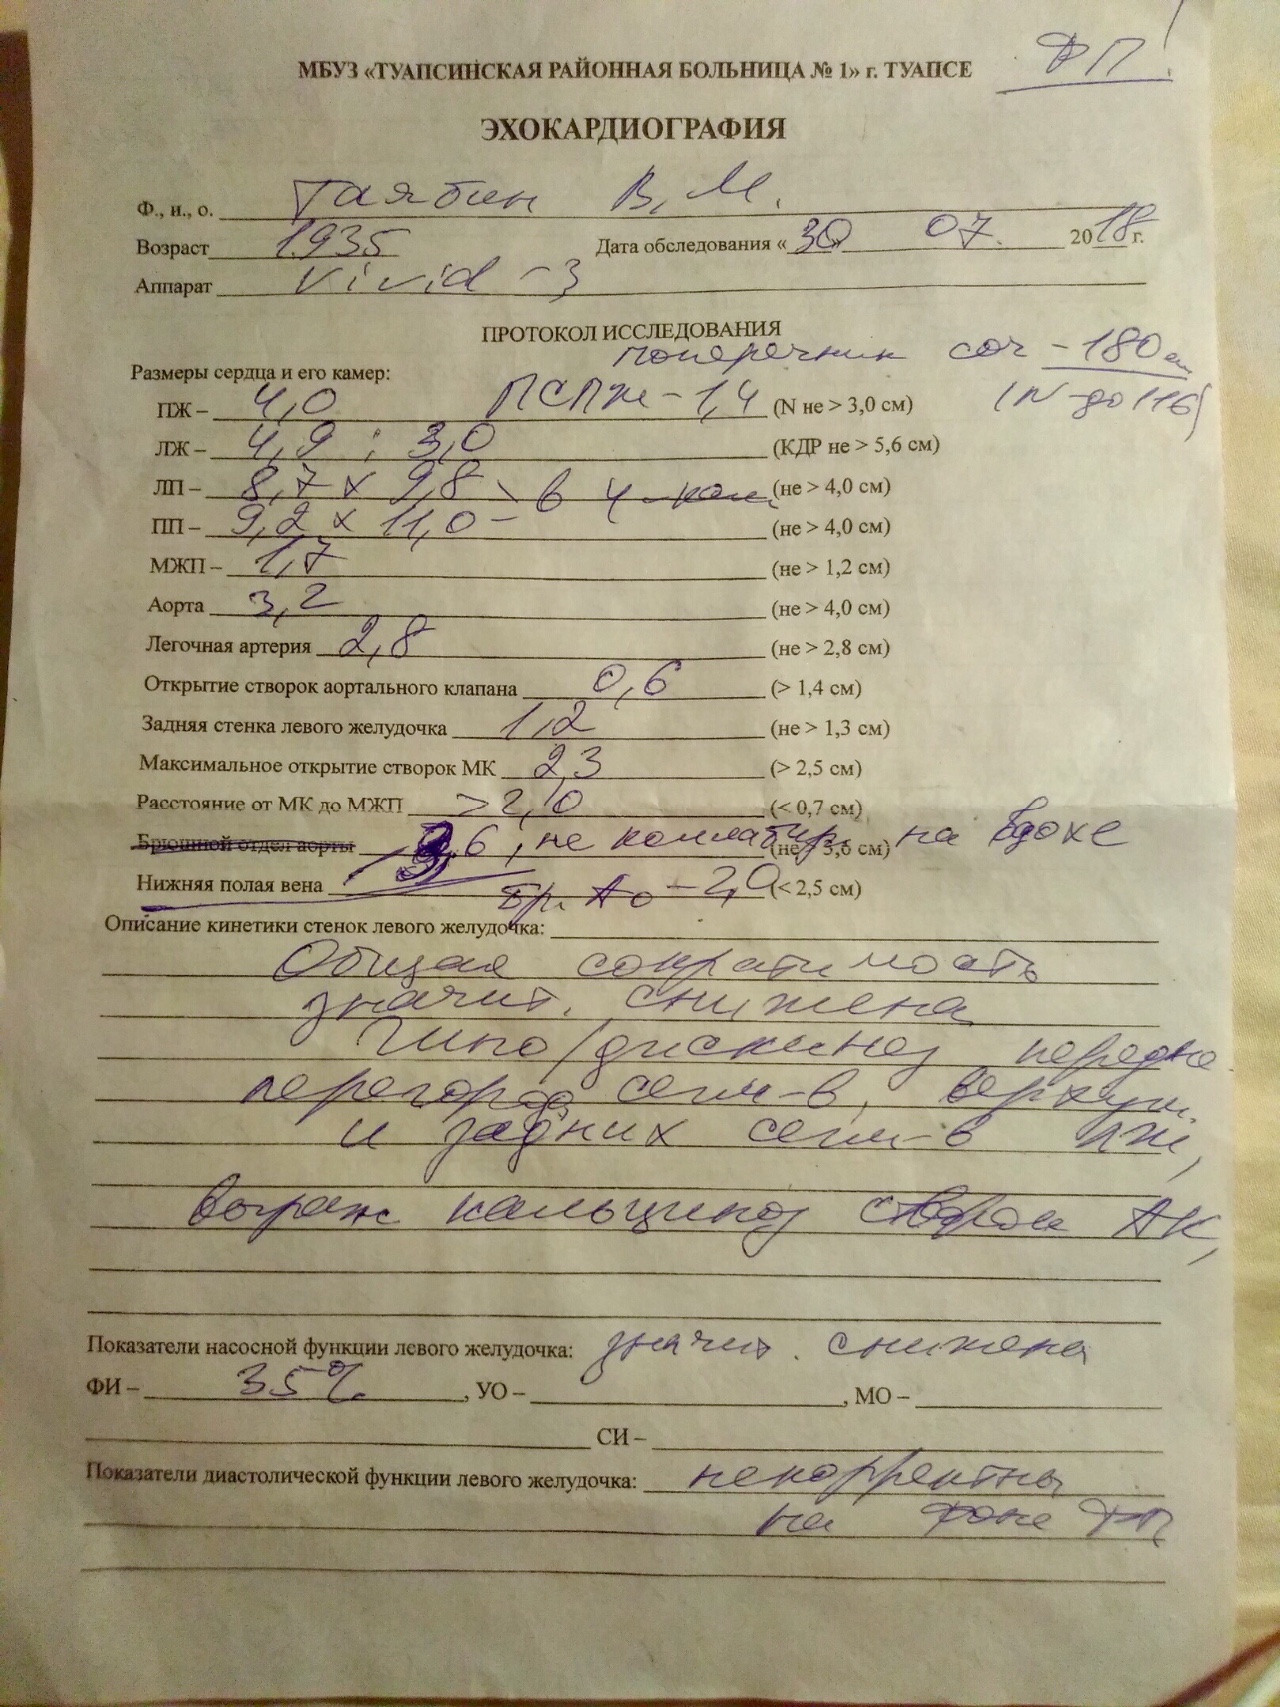 ФП!
МБУЗ «ТУАПСИНСКАЯ РАЙОННАЯ БОЛЬНИЦА № 1» г. ТУАПСЕ
ЭХОКАРДИОГРАФИЯ
Ф., и., о. В. М.
Возраст 1935 Дата обследования « 30 07. 2018 г.
Аппарат Vivid - 3
ПРОТОКОЛ ИССЛЕДОВАНИЯ
поперечник - 180
Размеры сердца и его камер:
(N до 116)
ПЖ – 4,0 ПСПЖ - 1,4 (N не > 3,0 см)
ЛЖ – 4,9 ; 3,0 (КДР не > 5,6 см)
ЛП – 8,7 х 9,8 \ в 4-кам. (не > 4,0 см)
ПП – 9,2 х 11,0 - (не > 4,0 см)
МЖП – 1,7 (не > 1,2 см)
Аорта 3,2 (не > 4,0 см)
Легочная артерия 2,8 (не > 2,8 см)
Открытие створок аортального клапана 0,6 (> 1,4 см)
Задняя стенка левого желудочка 1,2 (не > 1,3 см)
Максимальное открытие створок МК 2,3 (> 2,5 см)
Расстояние от МК до МЖП > 2,0 (< 0,7 см)
Брюшной отдел аорты , не коллабир. на вдохе (не > 3,6 см)
Нижняя полая вена бр. Ао - 2,0 (< 2,5 см)
Описание кинетики стенок левого желудочка:
Общая сократимость
значит. снижена
Гипо/дискинез передне
перегород. сегм-в, верхуш.
и задних сегм-в ЛЖ,
выраж кальциноз створок АК,
Показатели насосной функции левого желудочка: значит. снижена
ФИ – 35% , УО – , МО –
СИ –
Показатели диастолической функции левого желудочка: некорректны
на фоне ФП